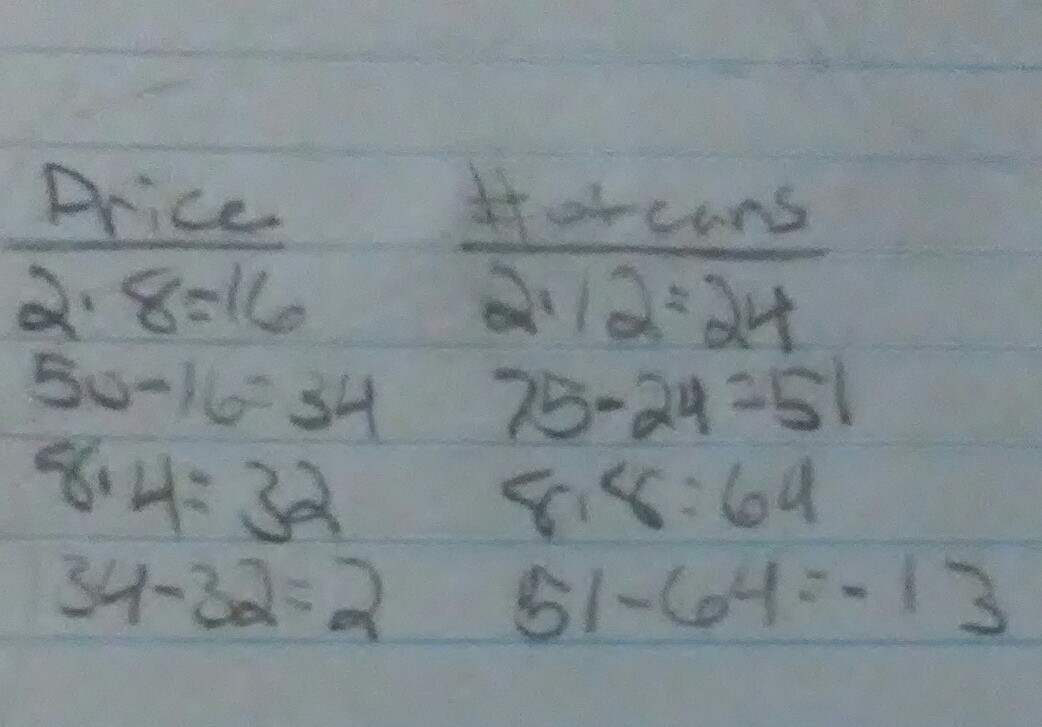 Price # of cans
2·8=16 2·12=24
50-16=34 75-24=51
8·4=32 8·8=64
34-32=2 51-64=-13